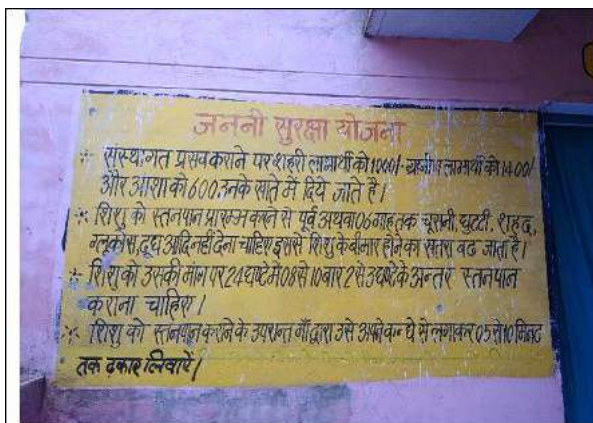 जननी सुरक्षा योजना
संस्थागत प्रसव कराने पर शहरी लाभार्थी को 1000/- ग्रामीण लाभार्थी को 1400/
और आशा को 600 उनके खाते में दिये जाते है।
शिशु को स्तनपान प्रारम्भ करने से पूर्व अथवा 06 माह तक चूसनी, घुटटी, शहद,
ग्लूकोस, दूध आदि नहीं देना चाहिए इससे शिशु के बीमार होने का खतरा बढ जाता है।
शिशु को उसकी मांग पर 24 घण्टे में 08 से 10 बार 2 से 3 घण्टे के अन्तर स्तनपान
कराना चाहिए।
शिशु को स्तनपान कराने के उपरान्त माँ द्वारा उसे अपने कन्धे से लगाकर 05 से 10 मिनट
तक ढकार लिवाऐं।